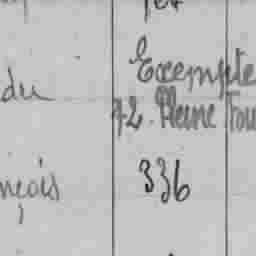 Exempte
du
72. Pleine Fou
nçois 336